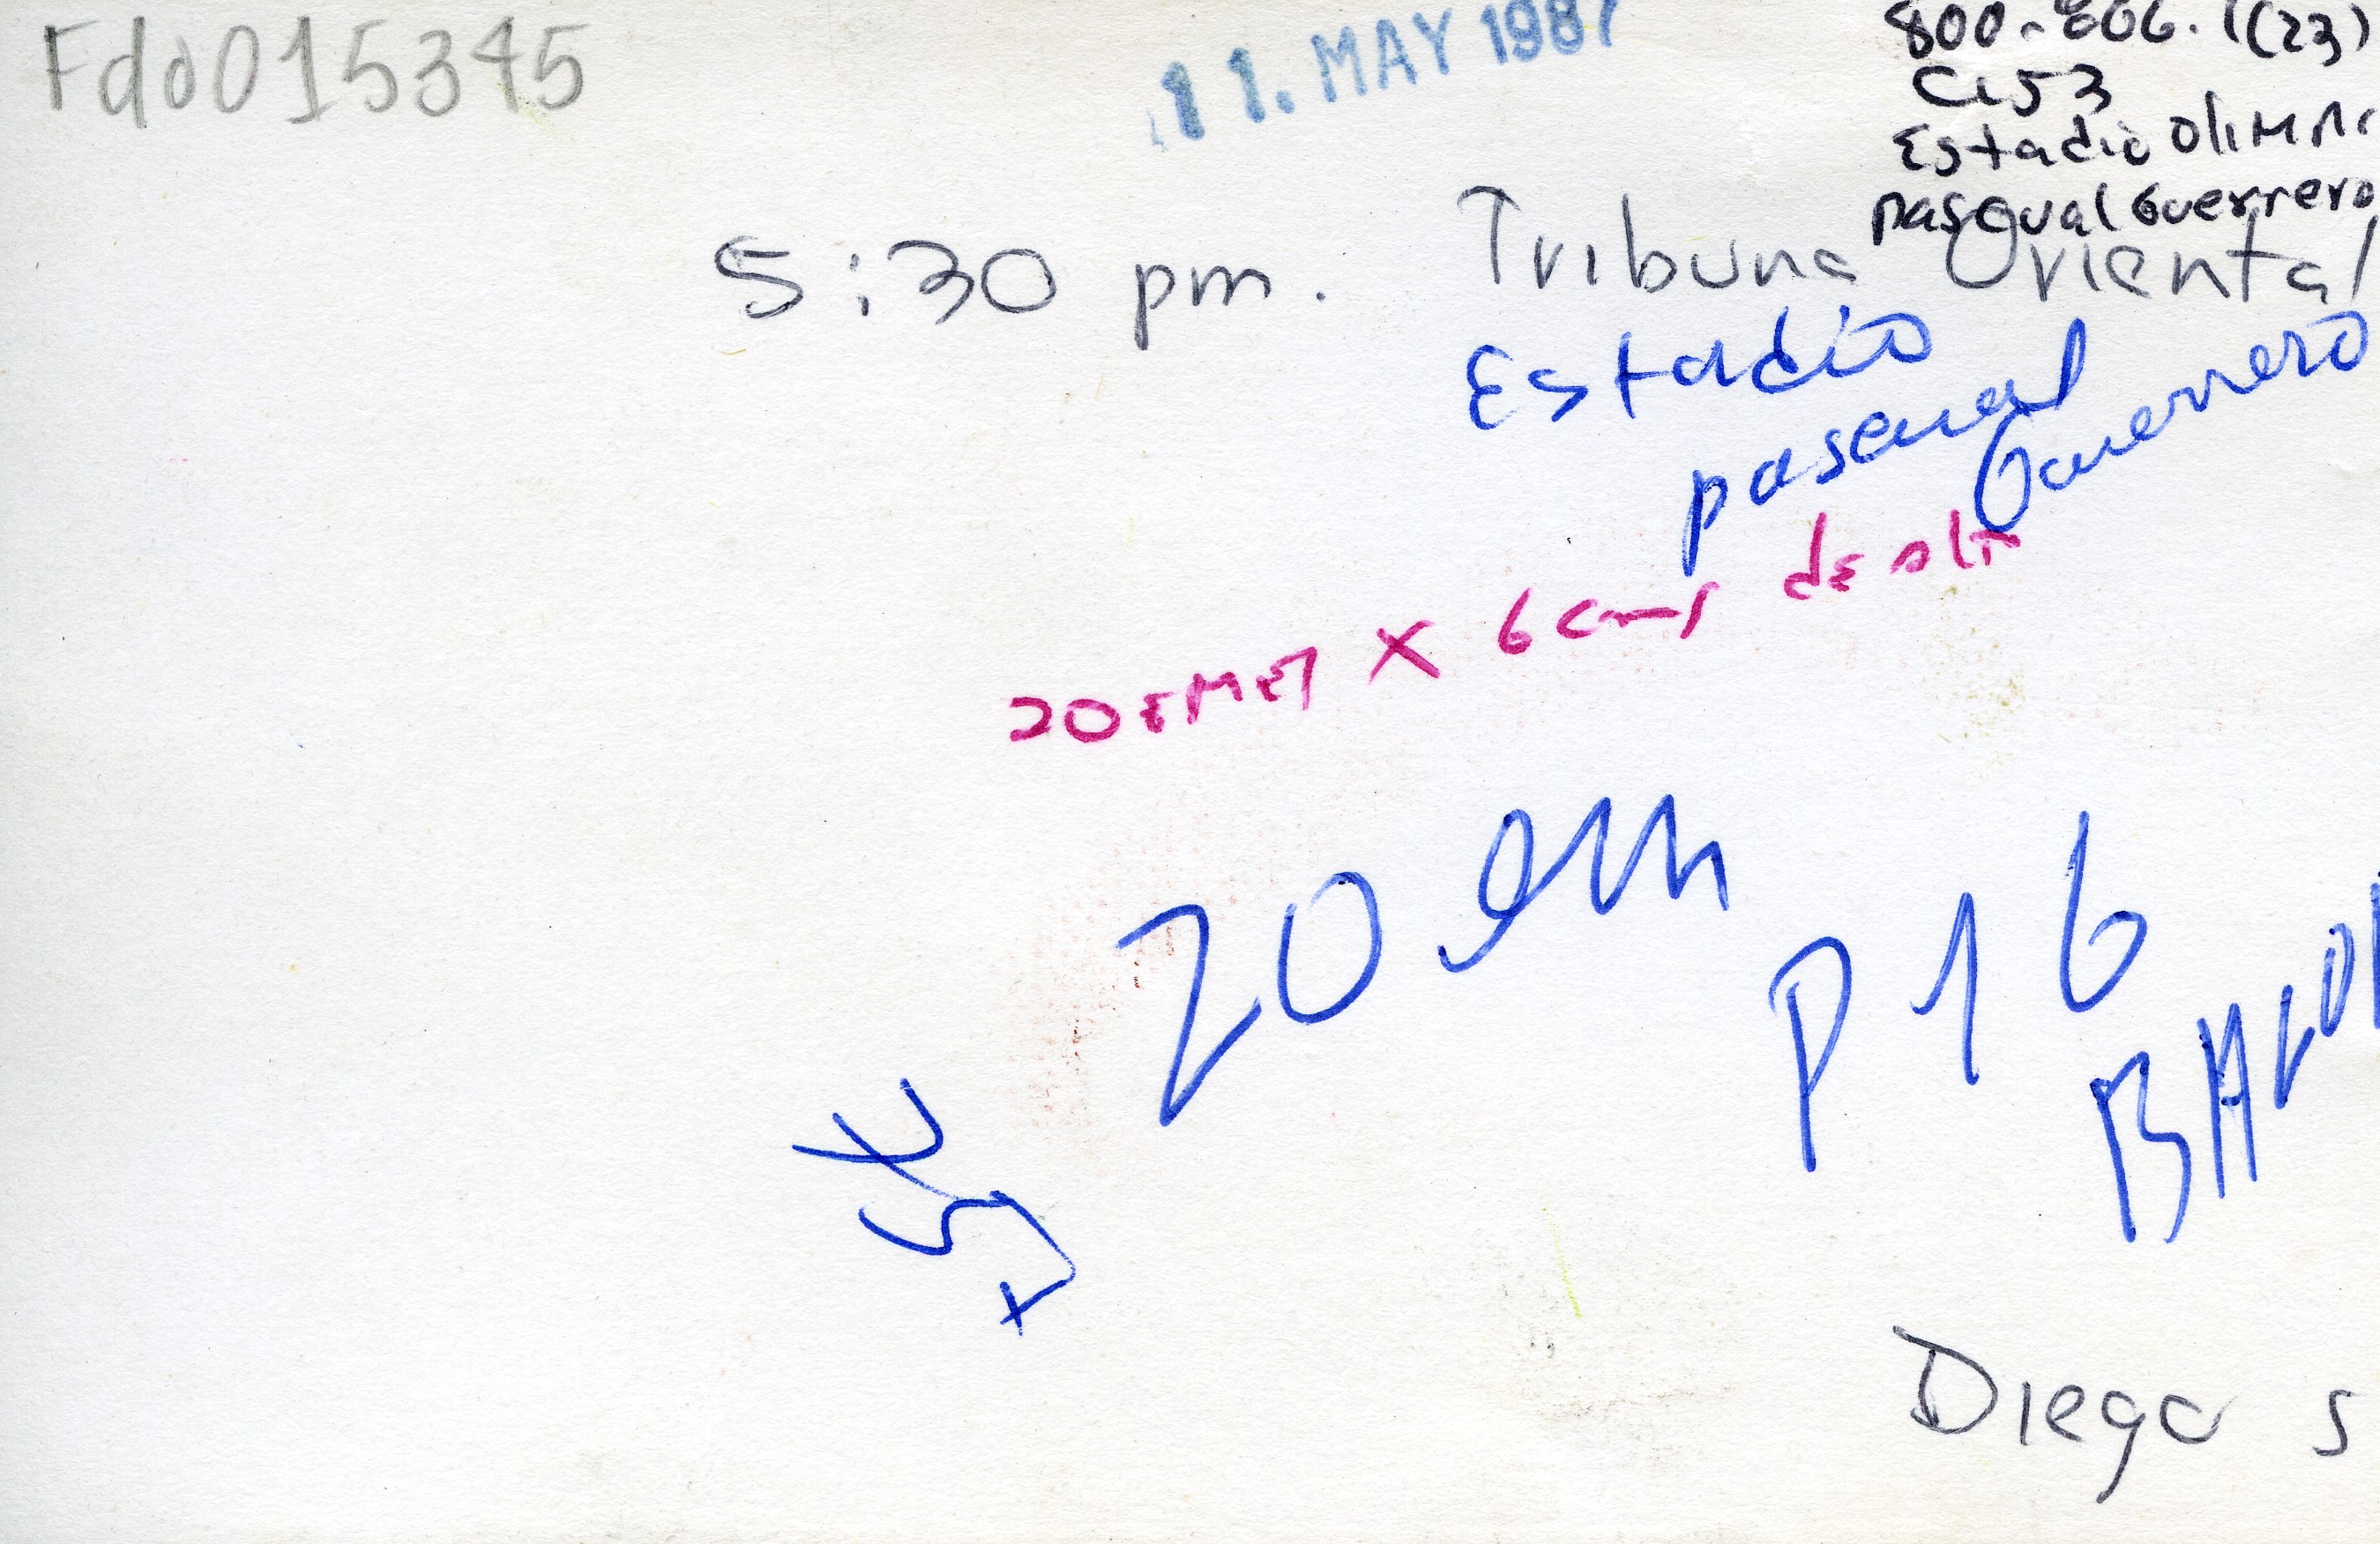 Fdo015345
11. MAY 1987
800-806.1(23)
C153
Estadio Olimpic
Pasqual Guerrero
5:30 pm. Tribuna Oriental
Estadio
pascual
Guerrero
20 EMES X 6 cms de alto
20 em
P 16
Diego S